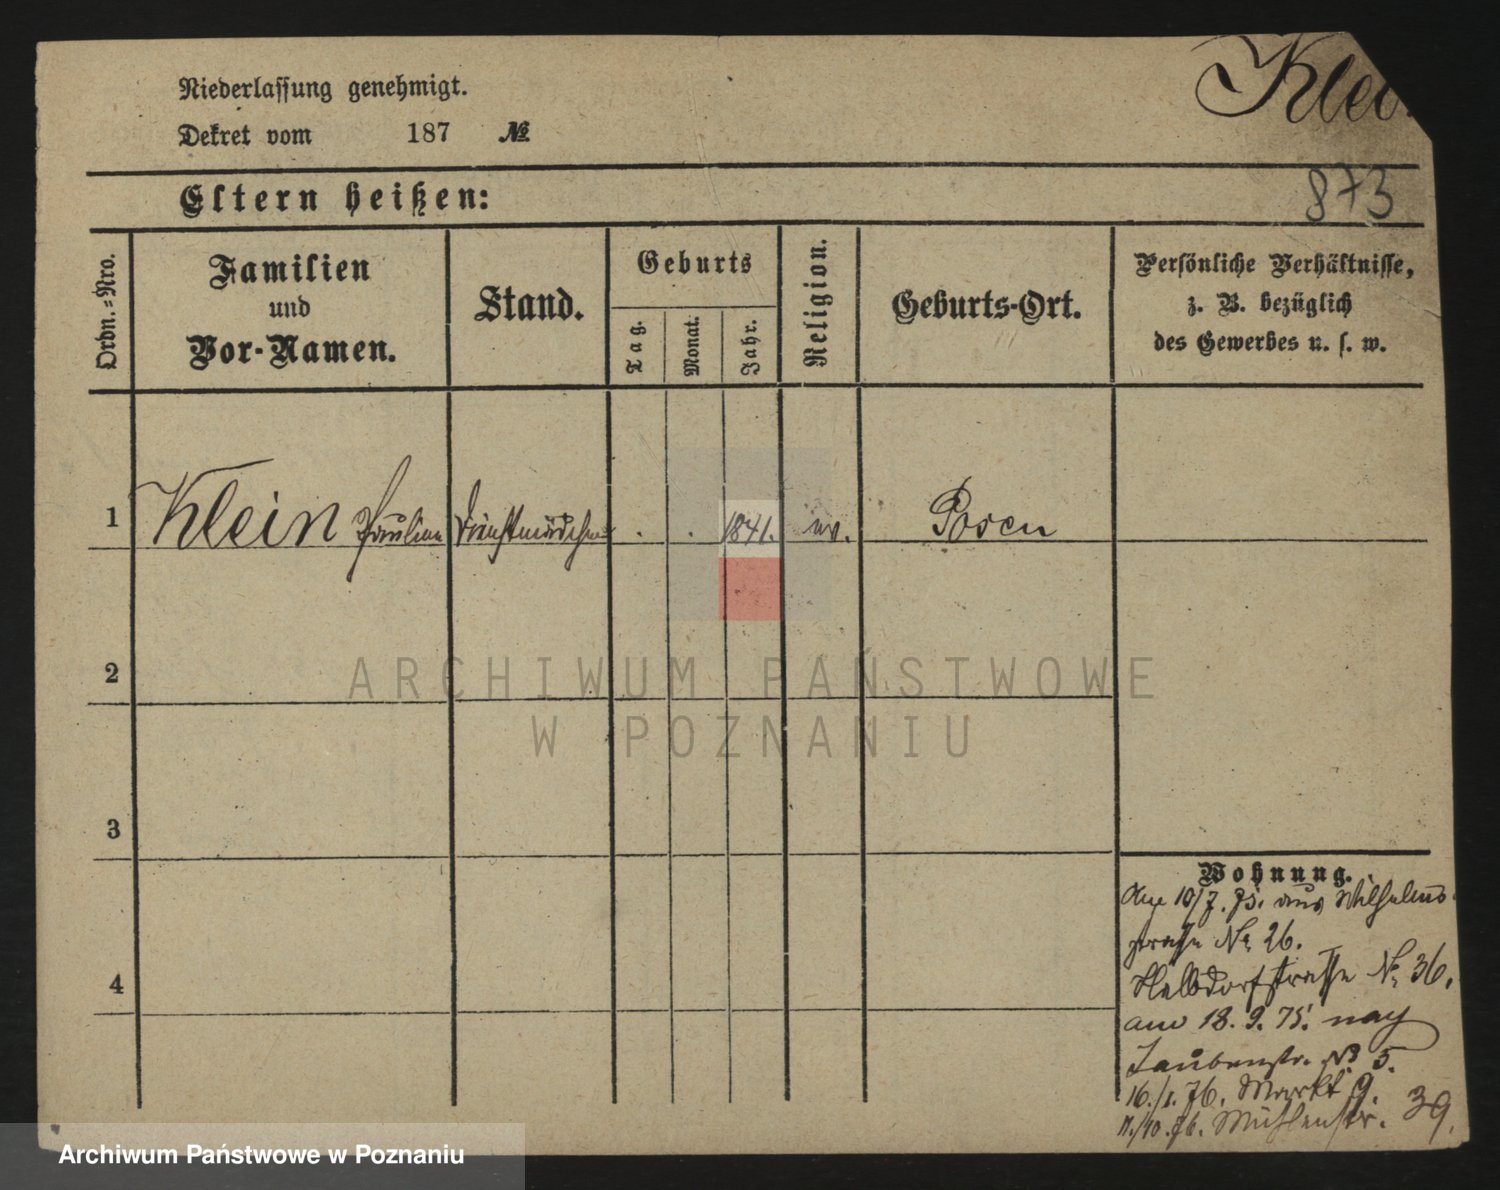 Niederlassung genehmigt.
Dekret vom 187 №
Klei
873
Eltern heißen:
Ordn.-Nro.
Familien
und
Vor-Namen.
Stand.
Geburts
Tag.
Monat.
Jahr.
Religion.
Geburts-Ort.
Persönliche Verhältnisse,
z. B. bezüglich
des Gewerbes u. s. w.
1 Klein Pauline Dienstmädchen . . 1841. ev. Posen
2
3
4
ARCHIWUM PAŃSTWOWE
W POZNANIU
Wohnung.
10/7. 75. aus Wilhelms-
straße No 26.
Halbdorfstraße No 36.
am 18. 9. 75. nach
Taubenstr. No 5.
16./1. 76. Markt 9.
11./10. 76. Mühlenstr. 39.
Archiwum Państwowe w Poznaniu